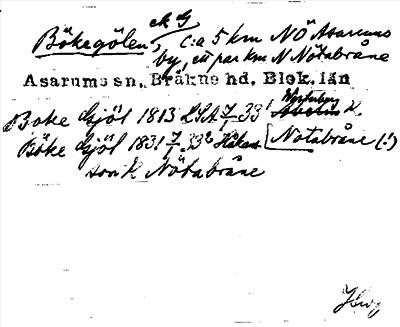 Bökegölen, ek G c:a 5 km NÖ Asarums
by, ett par km N Nötabråne
Asarums sn. Bräkne hd. Blek. län
Boke Gjöl 1813 LSA 7/1 33¹ K
Böke Gjöl 1831 7/1 33² Håkans [Notabråne (!)
son K Nötabråne